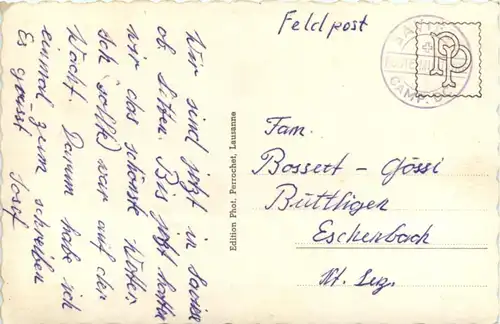 Feldpost
Wir sind jetzt in
ob Sitten. Bis jetzt hatten
wir das schönste Wetter.
Ich (sollte) war auf der
Wacht. Darum habe ich
einmal zeim schreiben
Es grüsst Josef
Edition Phot. Perrochet, Lausanne
CAMP.
PP
Fam.
Bossert - Gössi
Büttligen
Eschenbach
Kt. Luz.